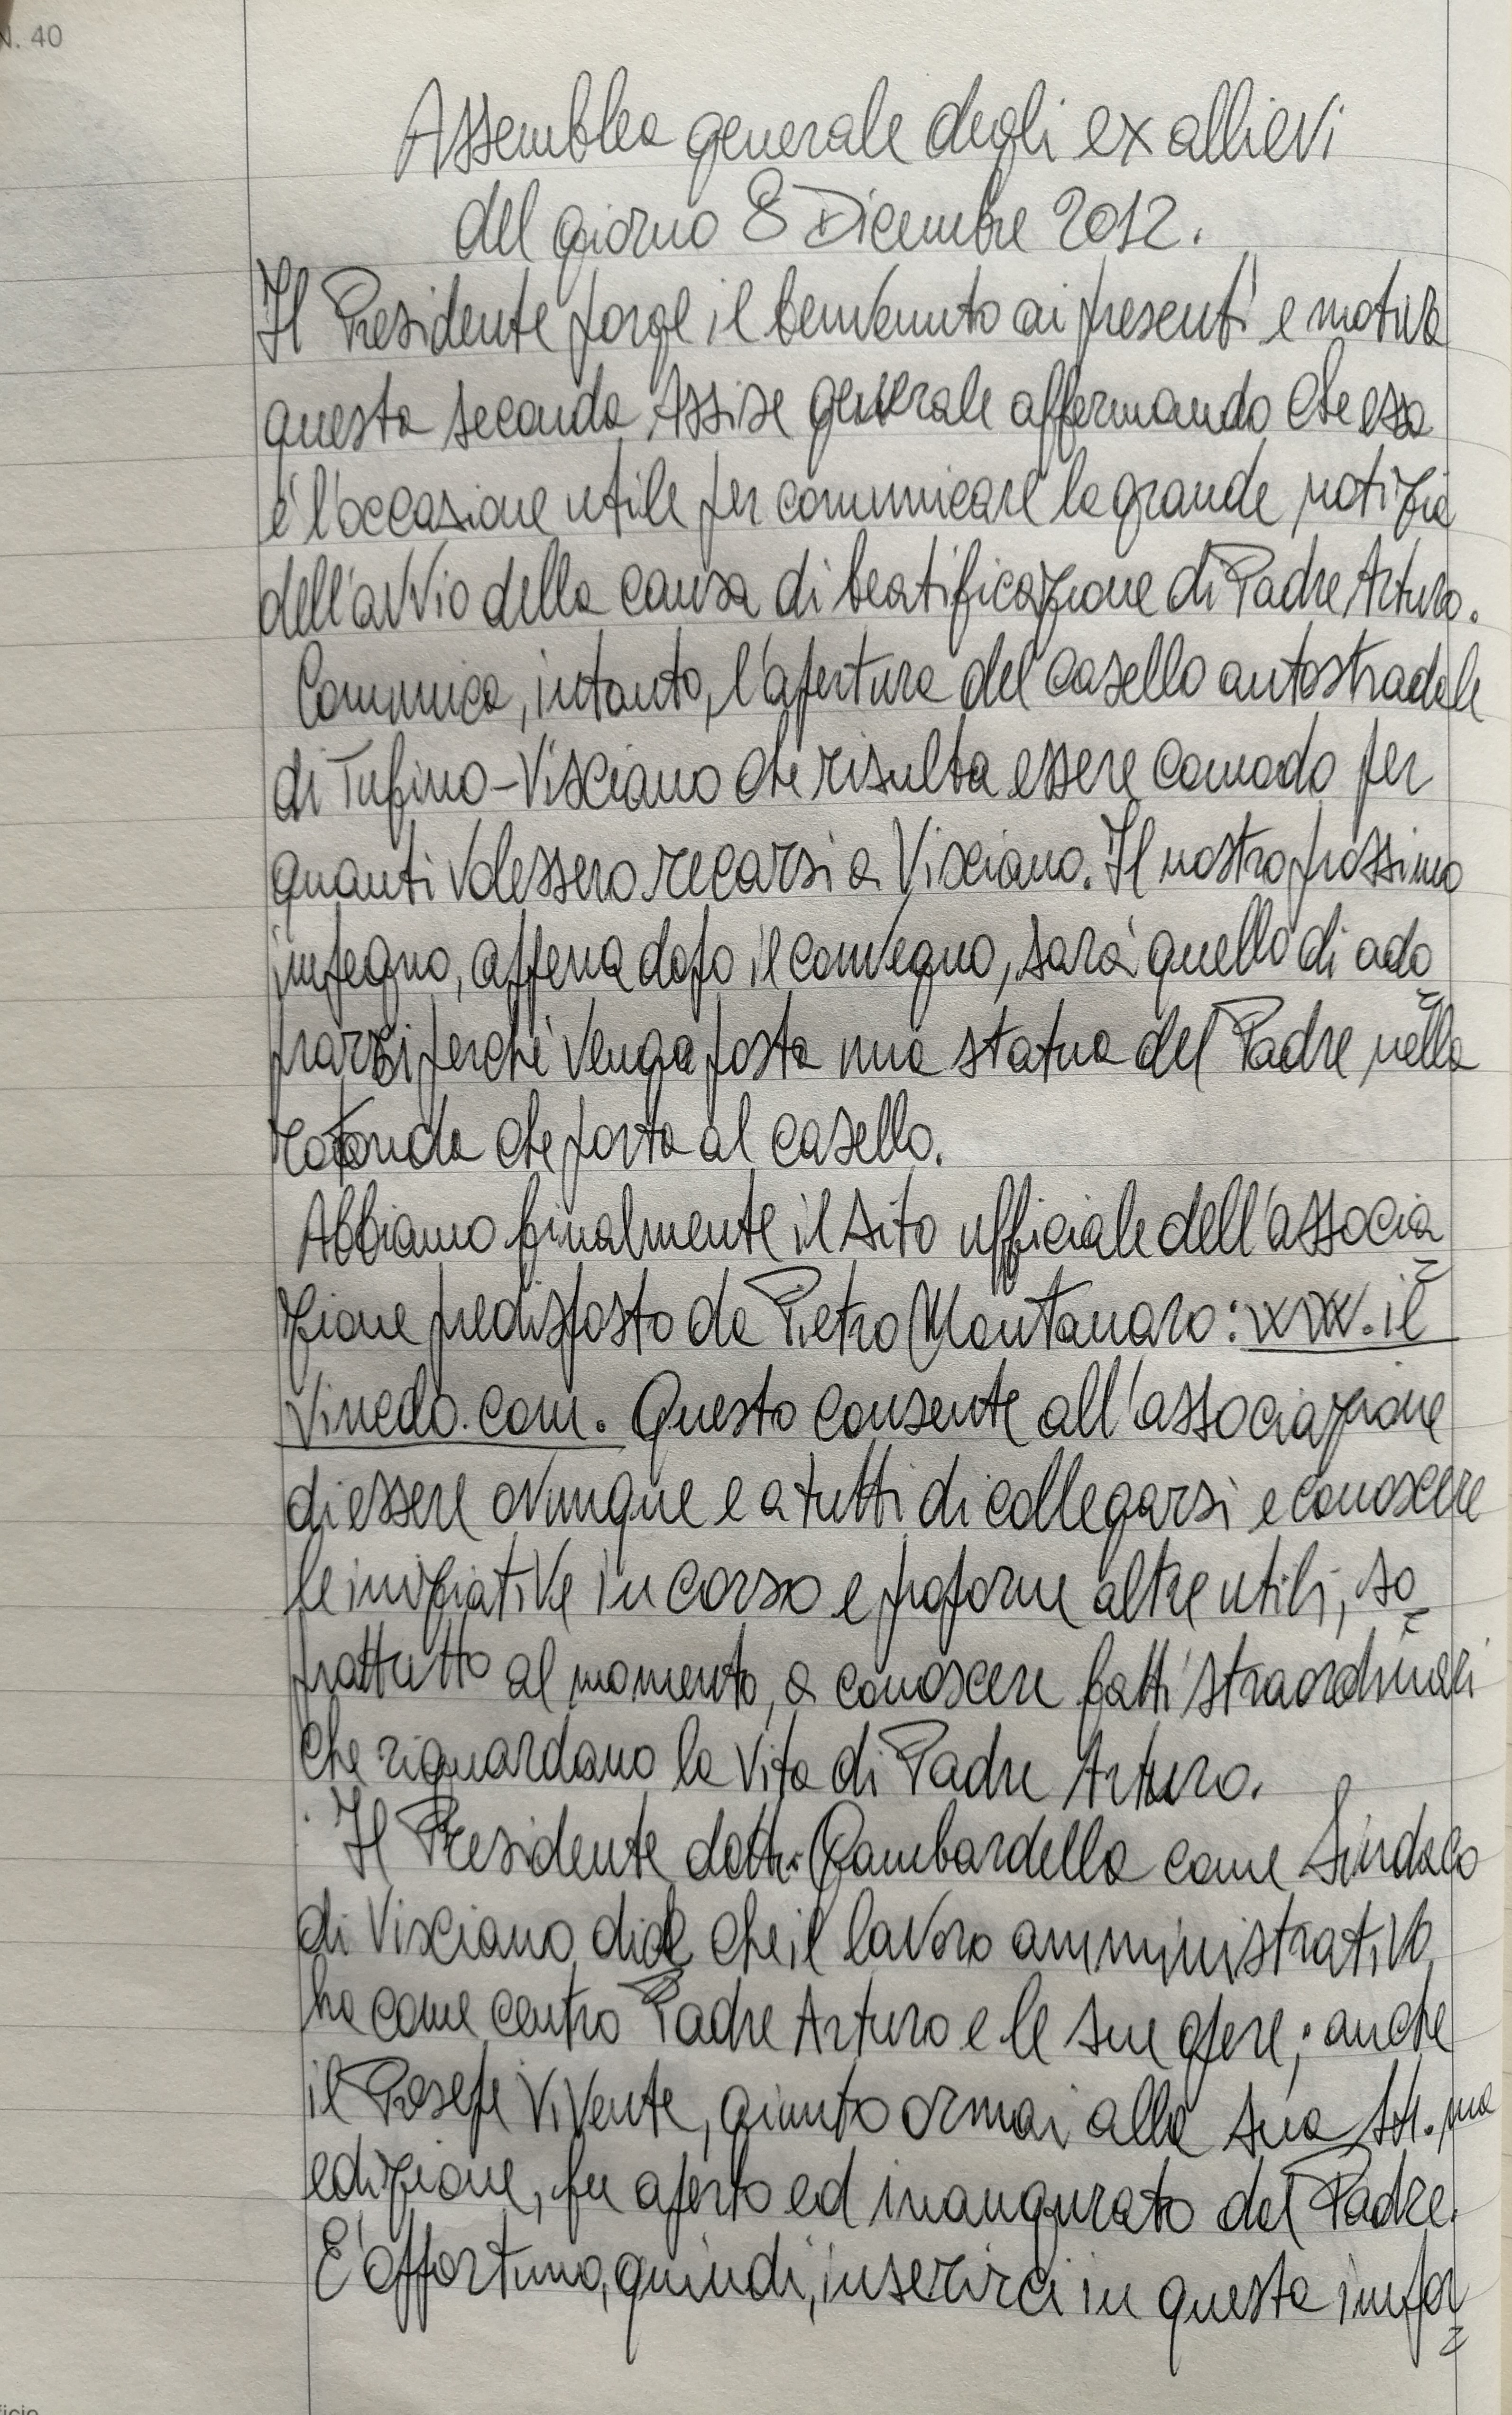 N. 40
Assemblea generale degli ex allievi
del giorno 8 Dicembre 2012.
Il Presidente porge il benvenuto ai presenti e motiva
questa seconda Assise generale affermando che essa
è l'occasione utile per comunicare la grande notizia
dell'avvio della causa di beatificazione di Padre Arturo.
Comunica, intanto, l'apertura del casello autostradale
di Tufino-Visciano che risulta essere comodo per
quanti volessero recarsi a Visciano. Il nostro prossimo
impegno, appena dopo il convegno, sarà quello di ado
prarci perché venga posta una statua del Padre nella
rotonda che porta al casello.
Abbiamo finalmente il sito ufficiale dell'associa
zione predisposto da Pietro Montanaro: www.il
Vinedo.com. Questo consente all'associazione
di essere ovunque e a tutti di collegarsi e conoscere
le iniziative in corso e proporne altre utili, so
prattutto al momento, a conoscere fatti straordinari
che riguardano la vita di Padre Arturo.
Il Presidente dott. Gambardella come Sindaco
di Visciano dice che il lavoro amministrativo
ha come centro Padre Arturo e le sue opere; anche
il Presepe Vivente, giunto ormai alla sua
edizione, fu aperto ed inaugurato dal Padre.
E' opportuno, quindi, inserirci in questa impor